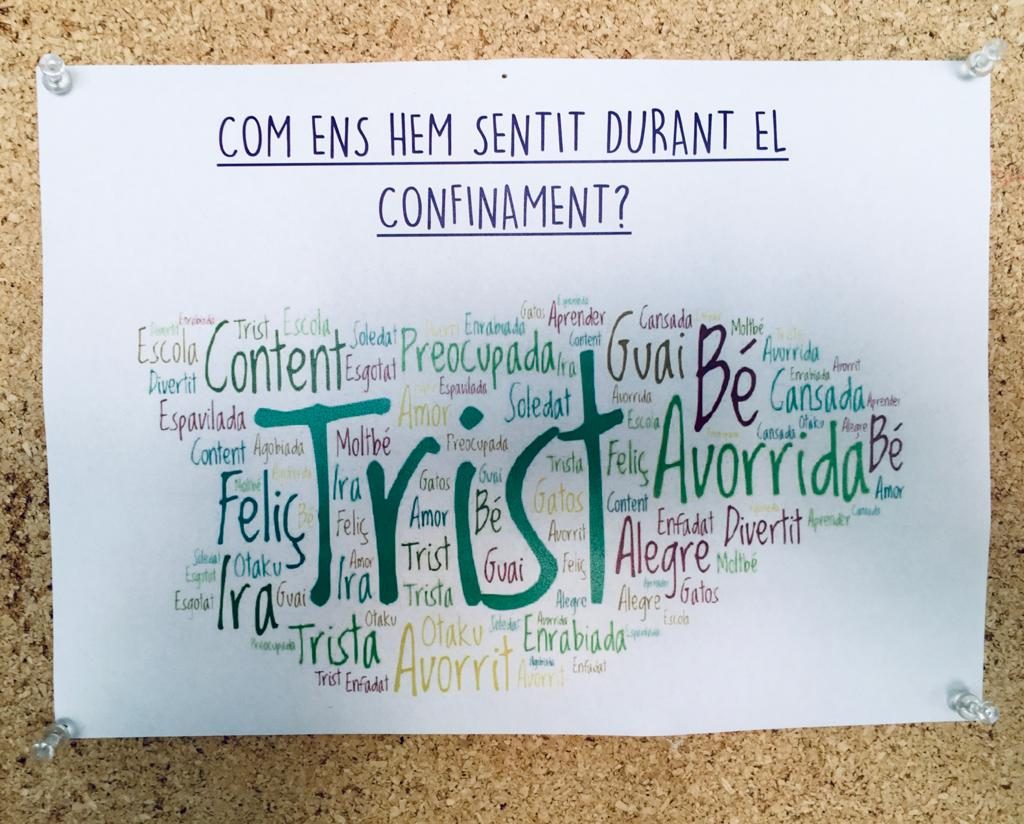 COM ENS HEM SENTIT DURANT EL
CONFINAMENT?
Divertit Enrabiada Trist Escola Soledat Enrabiada Gatos Espavilada Aprender Cansada Moltbé
Escola Content Esgotat Preocupada Ira Content Guai Bé Avorrida
Divertit Espavilada Enrabiada Avorrit
Espavilada Amor Soledat Avorrida Cansada Aprender
Content Agobiada Moltbé Trist Preocupada Escola Cansada Otaku Alegre Bé
Moltbé Ira Gatos Guai Trista Feliç Avorrida Amor
Feliç Bé Feliç Amor Bé Gatos Content Enfadat Divertit Aprender Cansada
Trist Avorrit Alegre Moltbé
Soledat Otaku Amor Guai Feliç
Esgotat Ira Guai Ira Trista Alegre Alegre Gatos
Esgotat Otaku Soledat Avorrida Escola
Preocupada Trista Otaku Enrabiada Espavilada
Trist Enfadat Avorrit Agobiada Avorrit Enfadat